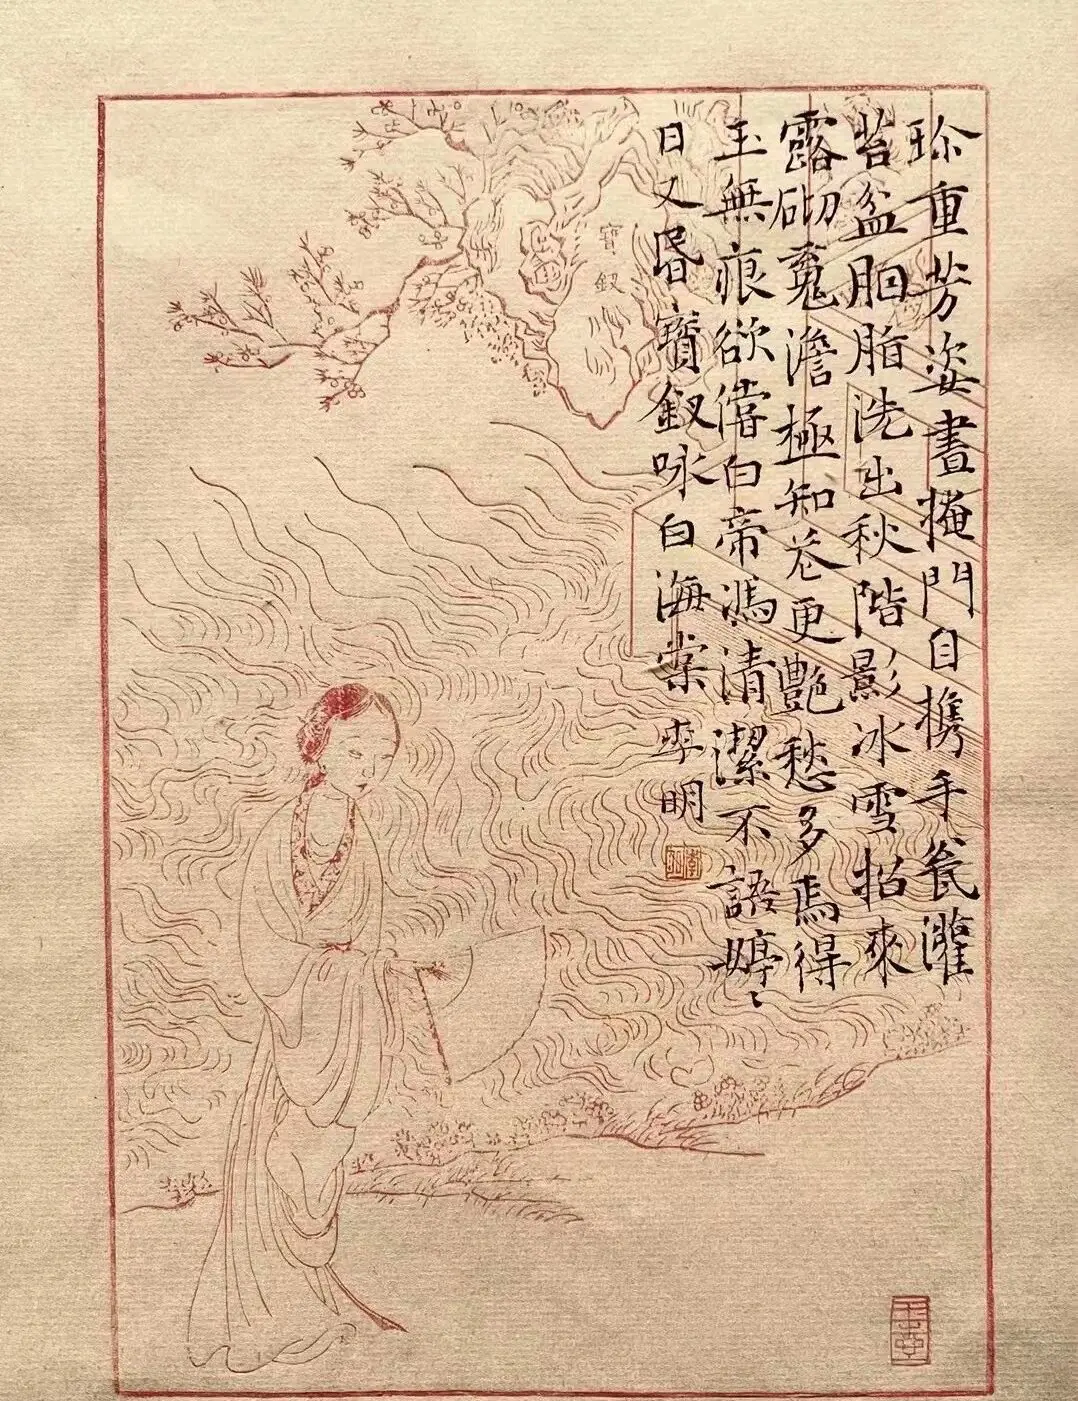 珎重芳姿晝掩門自携手瓮灌
苔盆胭脂洗出秋階影冰雪招來
露砌䰟澹極知花更艷愁多焉得
玉無痕欲償白帝馮清潔不語婷〻
日又昬寳釵咏白海棠 李明
寶釵